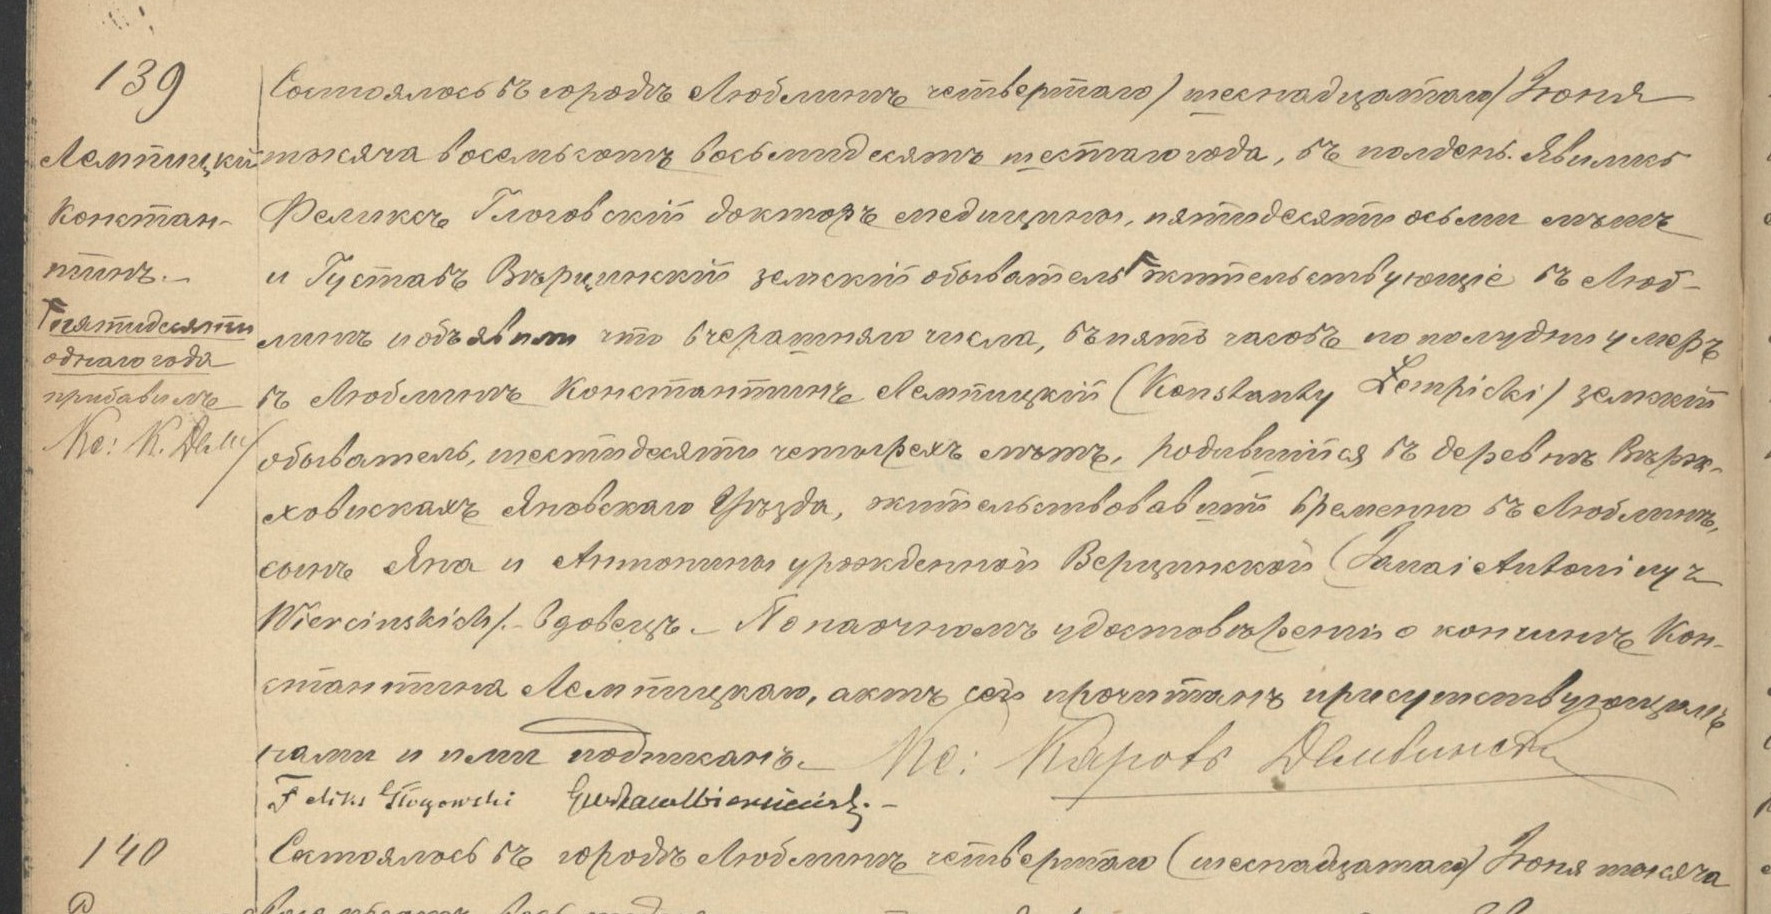 139
Лемпицкій
Констан-
тинъ.-
Гпятидесяти
однаго года
прибавилъ
Кс: К.
Состоялось въ городѣ Люблинѣ четвертаго) шеснадцатаго) Іюня
тысяча восемьсотъ восьмидесятъ шестаго года, въ полдень. Явились
Феликсъ Глоговскій докторъ медицины, пятидесяти осьми лѣтъ
и Густавъ Вѣрцинскій земскій обыватель Г жительствующіе въ Люб-
линѣ и объявили что вчерашняго числа, въ пять часовъ по полудни умеръ
въ Люблинѣ Константинъ Лемпицкій (Konstanty Łempicki) земскій
обыватель, шестидесяти четырехъ лѣтъ, родившійся въ деревнѣ Вѣрж-
ховискахъ Яновскаго Уѣзда, жительствовавшій временно въ Люблинѣ,
сынъ Яна и Антонины урожденной Верцинской (Jana i Antoniny z
Wiercinskich).- вдовецъ.- По наочномъ удостовѣреніи о кончинѣ Кон-
стантина Лемпицкаго, актъ сей прочитанъ присутствующимъ
нами и ими подписанъ.- Кс: Кароль
Feliks Głogowski Gustaw Wierciński.-
140
Состоялось въ городѣ Люблинѣ четвертаго (шеснадцатаго) Іюня тысяча